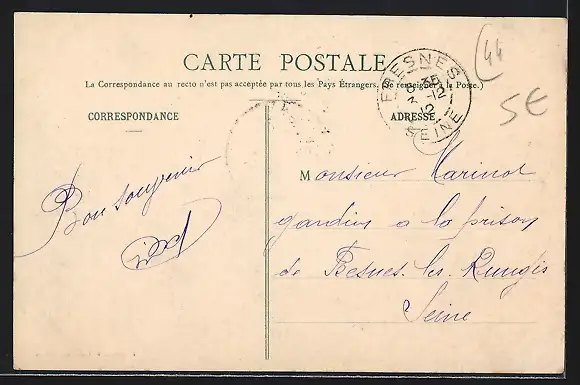 CARTE POSTALE
La Correspondance au recto n'est pas acceptée par tous les Pays Étrangers. (Se renseigner à la Poste.)
CORRESPONDANCE
ADRESSE
FRESNES
SEINE
8 35
3-12
12
44
5€
Bon souvenir
Monsieur Marinot
gardien a la prison
de Fresnes les Rungis
Seine